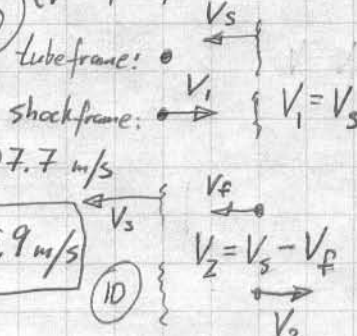 Vs
tube frame:
V1
shock frame: V1 = Vs
7.7 m/s
Vs Vf
9 m/s V2 = Vs - Vf
10
V2